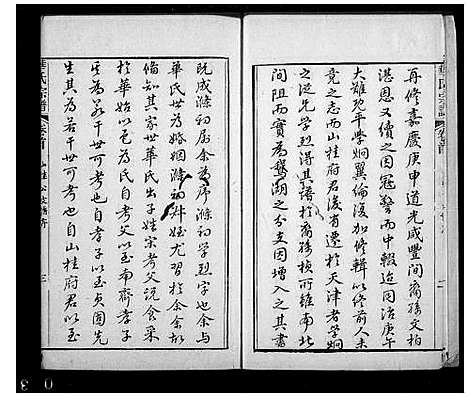 再修嘉慶庚申道光咸豐間裔孫文柏
湛恩又續之因寇警而中輟迨同治庚午
大難既平學炯翼綸復加修輯以修前人未
竟之志而山桂府君後有遷於天津者學炯
之從兄學烈得其譜於裔孫楨所雖南北
間阻而實為鵞湖之分支因增入之其書
既成滌初屬余為序滌初學烈字也余與
華氏世為婚姻滌初姪尤習於余余以
備知其家世華氏出子姓宋考父說食采
於華始以邑為氏自考父以至南齊孝子
為若干世可考也自孝子以至貞固先
生其為若干世可考也自山桂府君以至
華氏宗譜